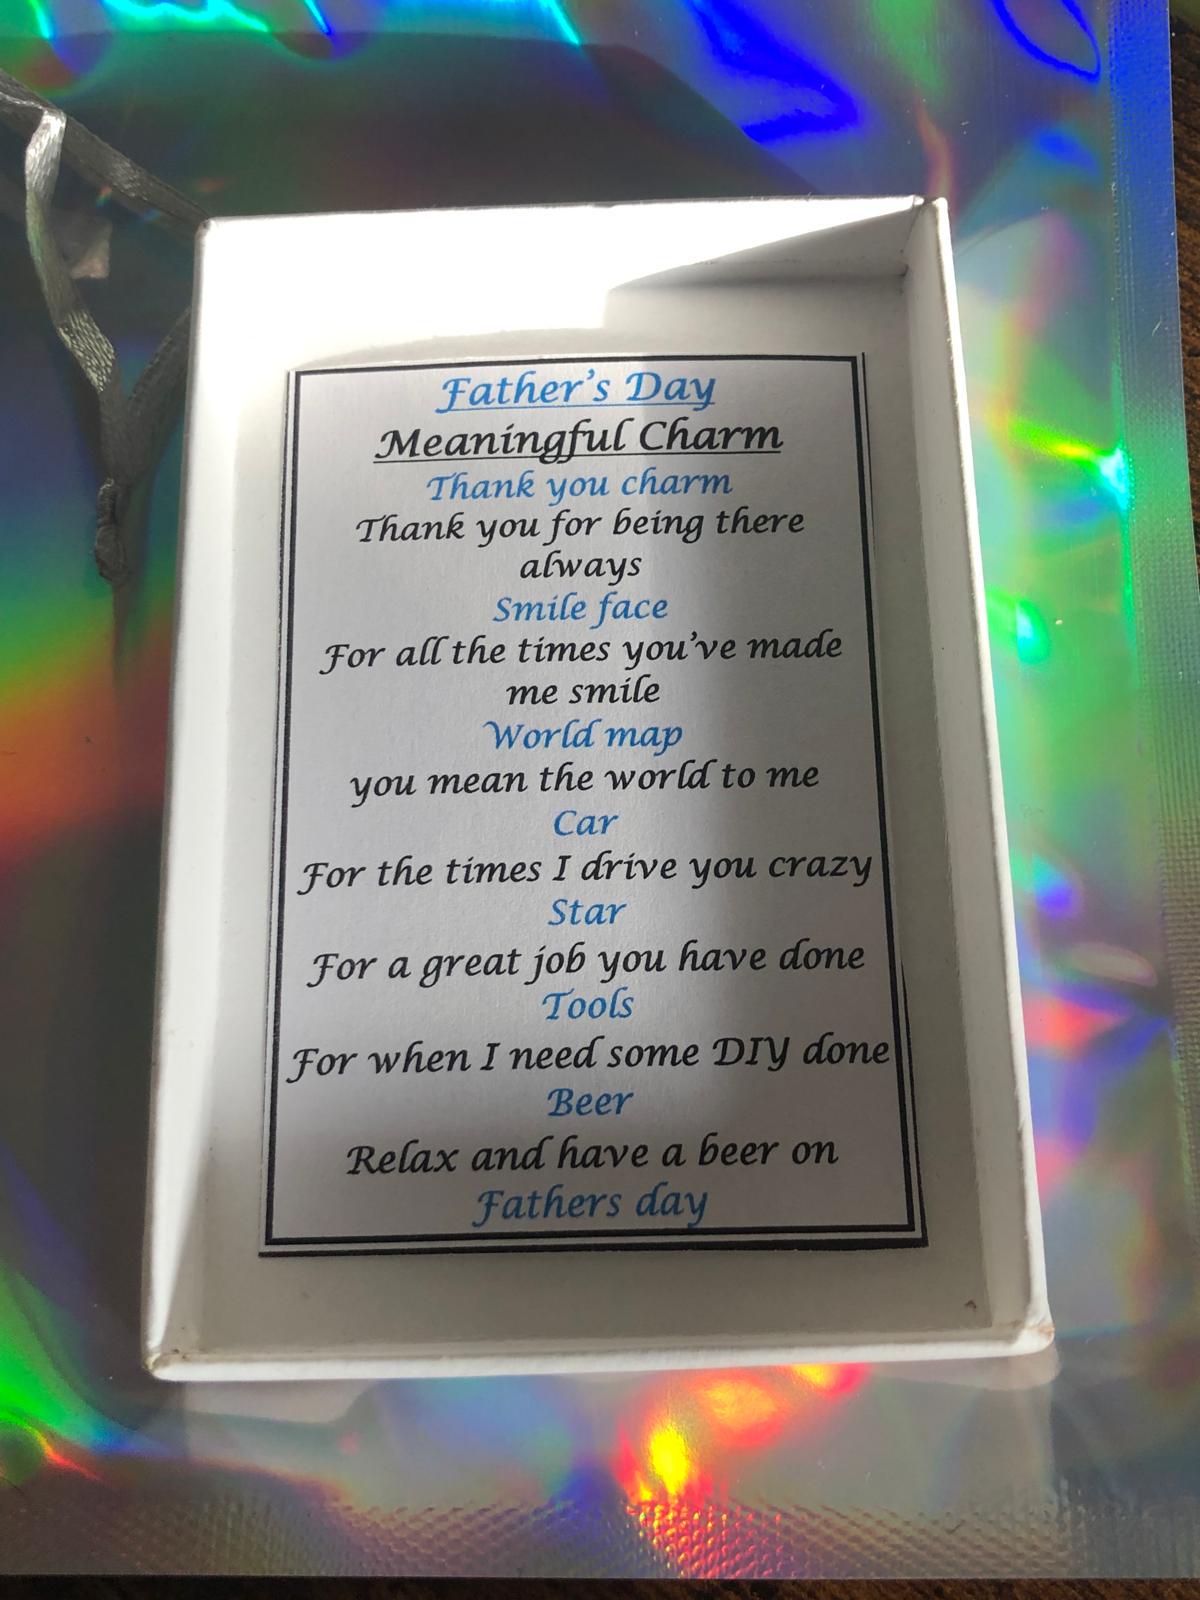 Father's Day
Meaningful Charm
Thank you charm
Thank you for being there
always
Smile face
For all the times you've made
me smile
World map
you mean the world to me
Car
For the times I drive you crazy
Star
For a great job you have done
Tools
For when I need some DIY done
Beer
Relax and have a beer on
Fathers day